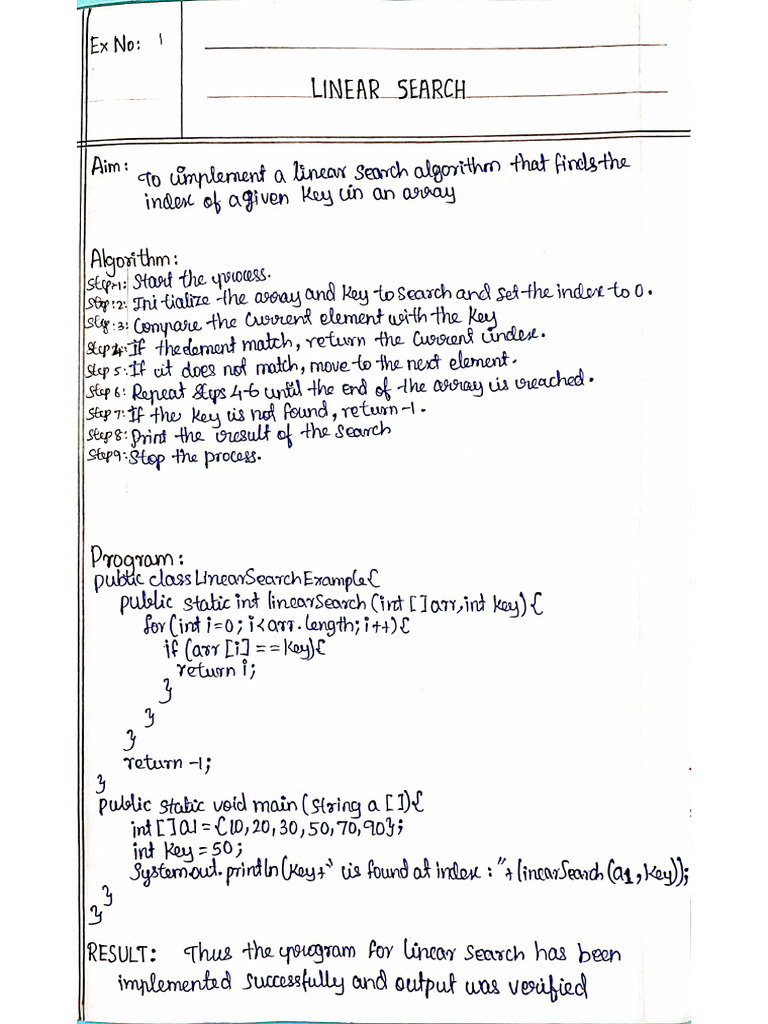 Ex No: 1
LINEAR SEARCH
Aim: To implement a linear search algorithm that finds the
index of a given key in an array
Algorithm:
Step-1: Start the process.
Step:2: Initialize the array and key to search and set the index to 0.
Step:3: Compare the current element with the key
Step 4: If the element match, return the current index.
Step 5: If it does not match, move to the next element.
Step 6: Repeat Steps 4-6 until the end of the array is reached.
Step 7: If the key is not found, return -1.
Step 8: Print the result of the search
Step 9: Stop the process.
Program:
public class LinearSearchExample{
public static int linearSearch (int [] arr, int key) {
for (int i=0; i<arr.length; i++) {
if (arr [i] == key) {
return i;
}
}
}
return -1;
}
public static void main (String a []) {
int [] a1 = {10, 20, 30, 50, 70, 90};
int key = 50;
System.out.println (key+" is found at index : "+ linearSearch (a1, key));
}
}
RESULT: Thus the program for linear search has been
implemented successfully and output was verified